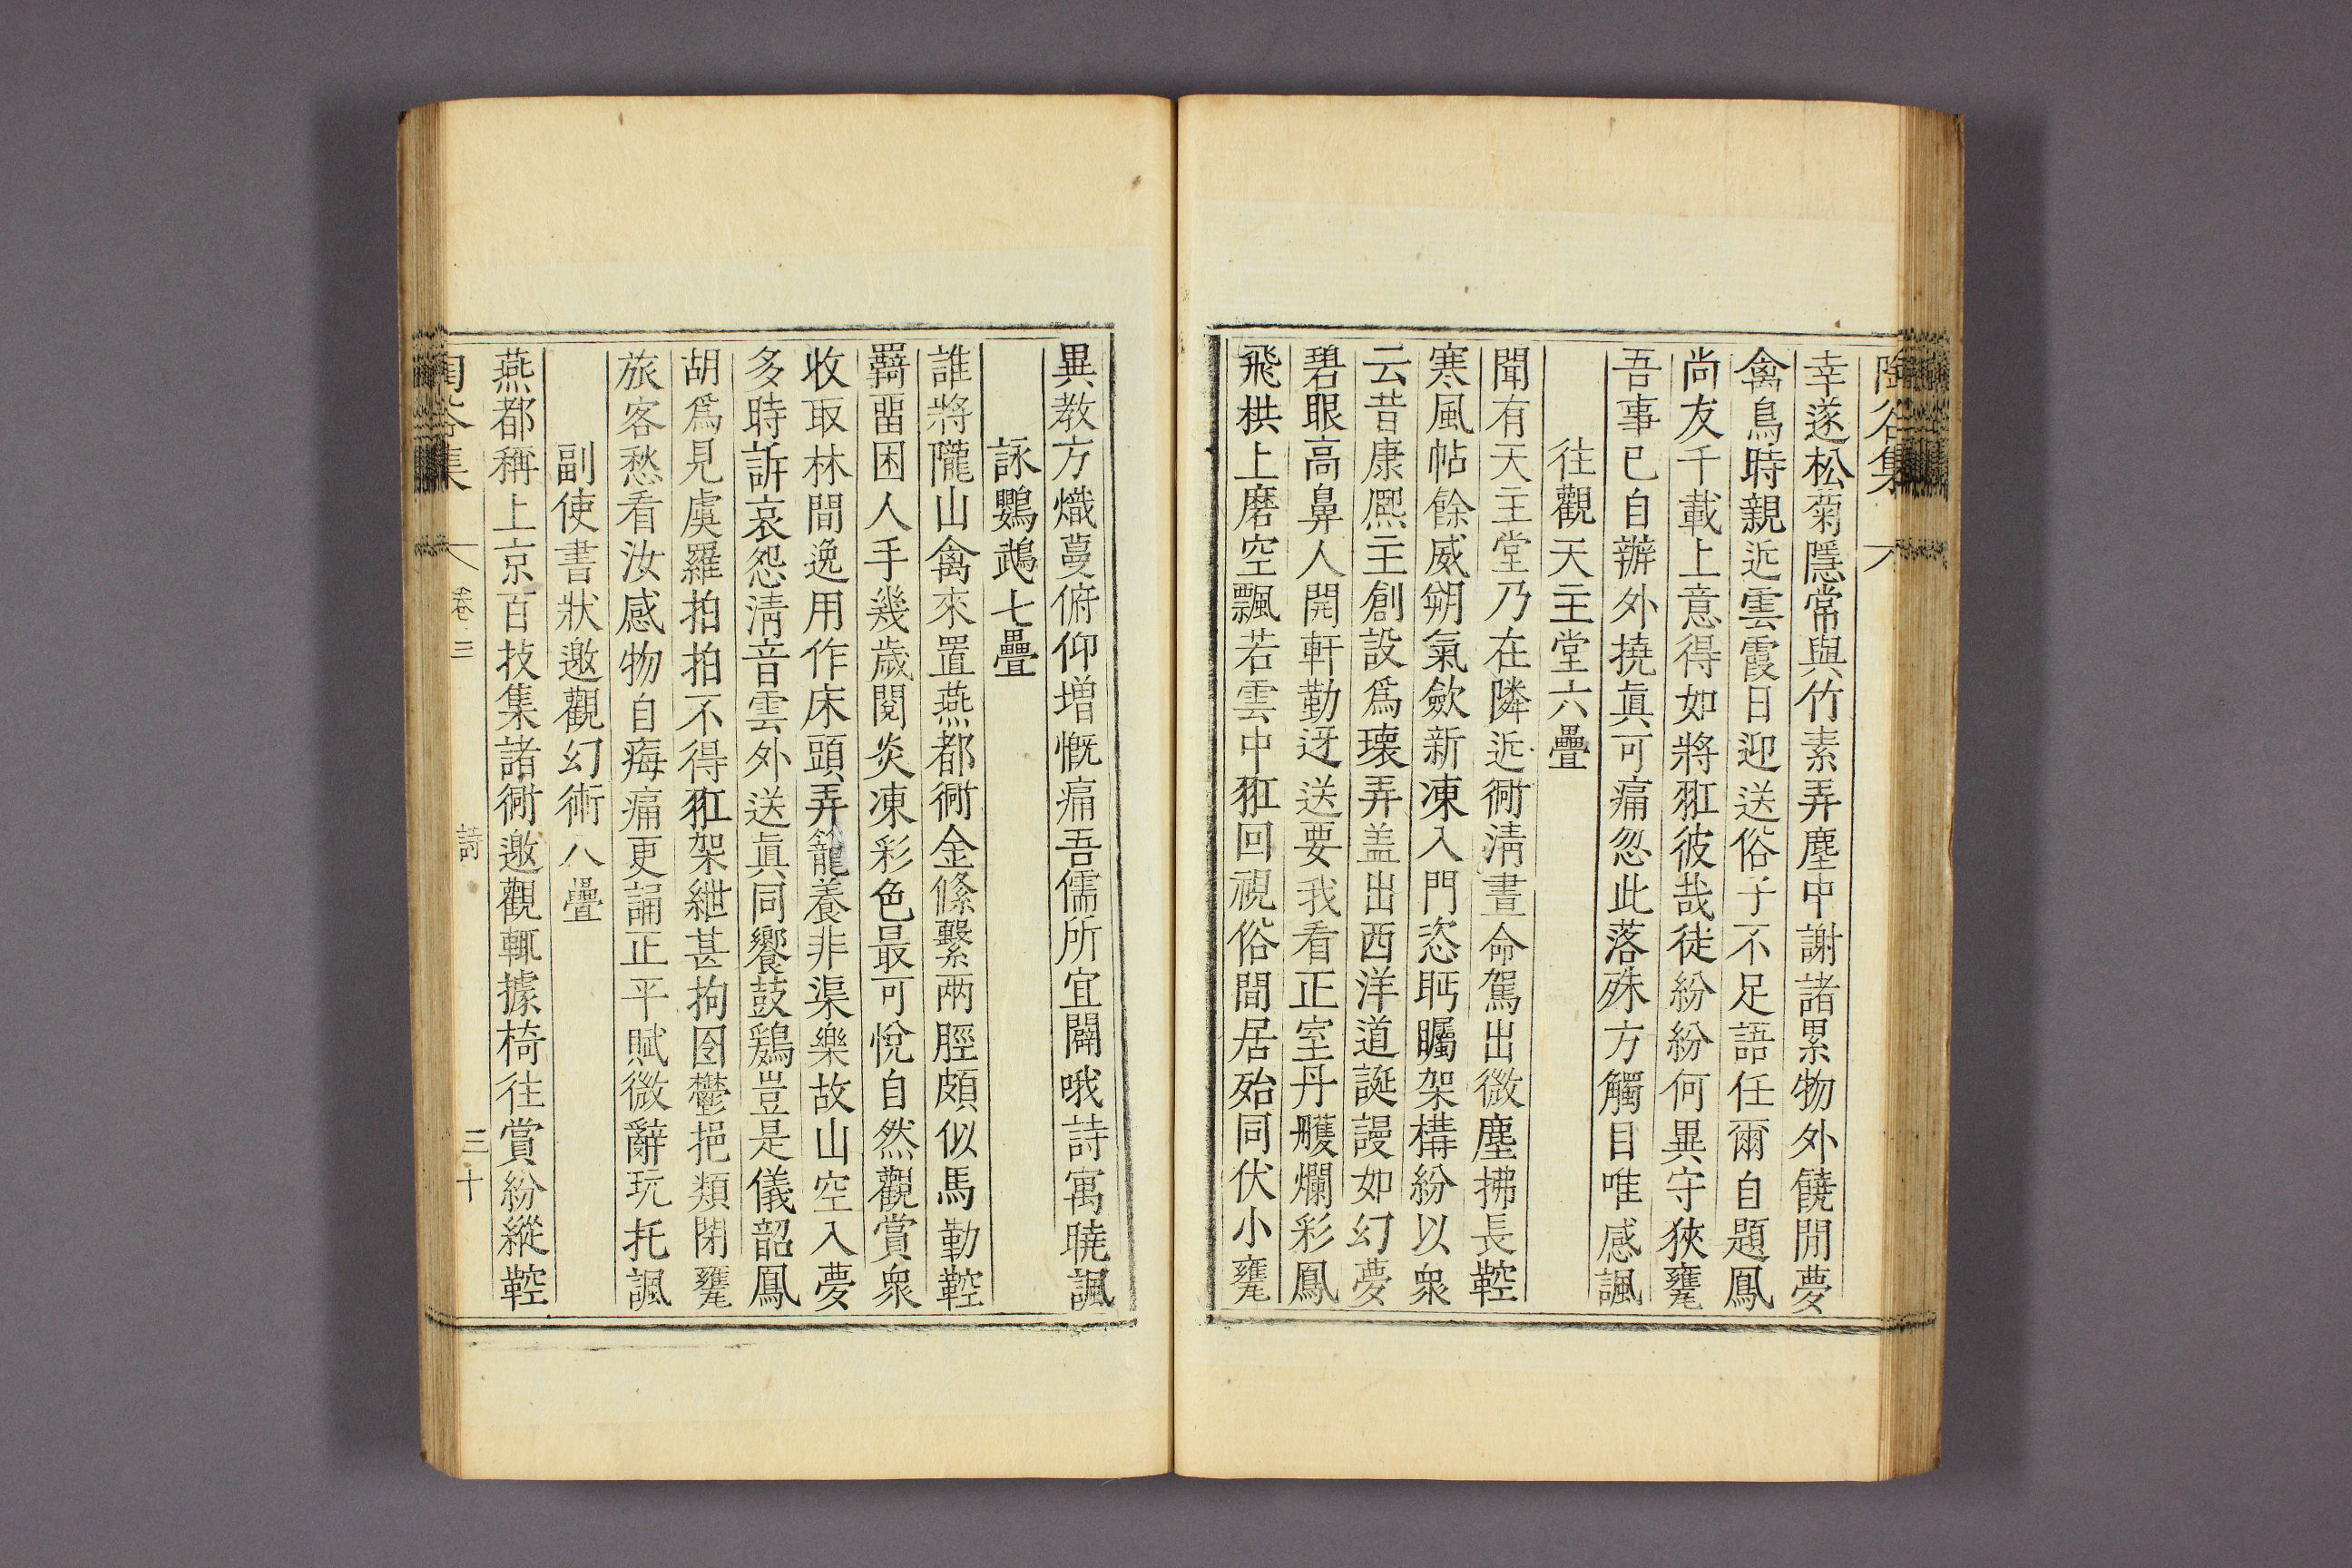 陶谷集
幸遂松菊隱常與竹素弄塵中謝諸累物外饒閒夢
禽鳥時親近雲霞日迎送俗子不足語任爾自題鳳
尚友千載上意得如將䎺彼哉徒紛紛何異守狹甕
吾事已自辦外撓眞可痛忽此落殊方觸目唯感諷
往觀天主堂六疊
聞有天主堂乃在隣近衕淸晝命駕出微塵拂長鞚
寒風帖餘威朔氣歛新凍入門恣眄矚架構紛以衆
云昔康熙主創設爲瓌弄盖出西洋道誕謾如幻夢
碧眼高鼻人開軒勤迓送要我看正室丹雘爛彩鳳
飛栱上磨空飄若雲中䎺回視俗間居殆同伏小甕
異教方熾蔓俯仰增慨痛吾儒所宜闢哦詩寓曉諷
詠鸚鵡七疊
誰將隴山禽來置燕都衕金絛繫兩脛頗似馬勒鞚
羇畱困人手幾歲閱炎凍彩色最可悅自然觀賞衆
收取林間逸用作床頭弄籠養非渠樂故山空入夢
多時訴哀怨淸音雲外送眞同饗鼓鷄豈是儀韶鳳
胡爲見虞羅拍拍不得䎺架紲甚拘囹鬱挹類閉甕
旅客愁看汝感物自痗痛更誦正平賦微辭玩托諷
副使書狀邀觀幻術八疊
燕都稱上京百技集諸衕邀觀輒據椅往賞紛縱鞚
陶谷集 卷三 詩 三十